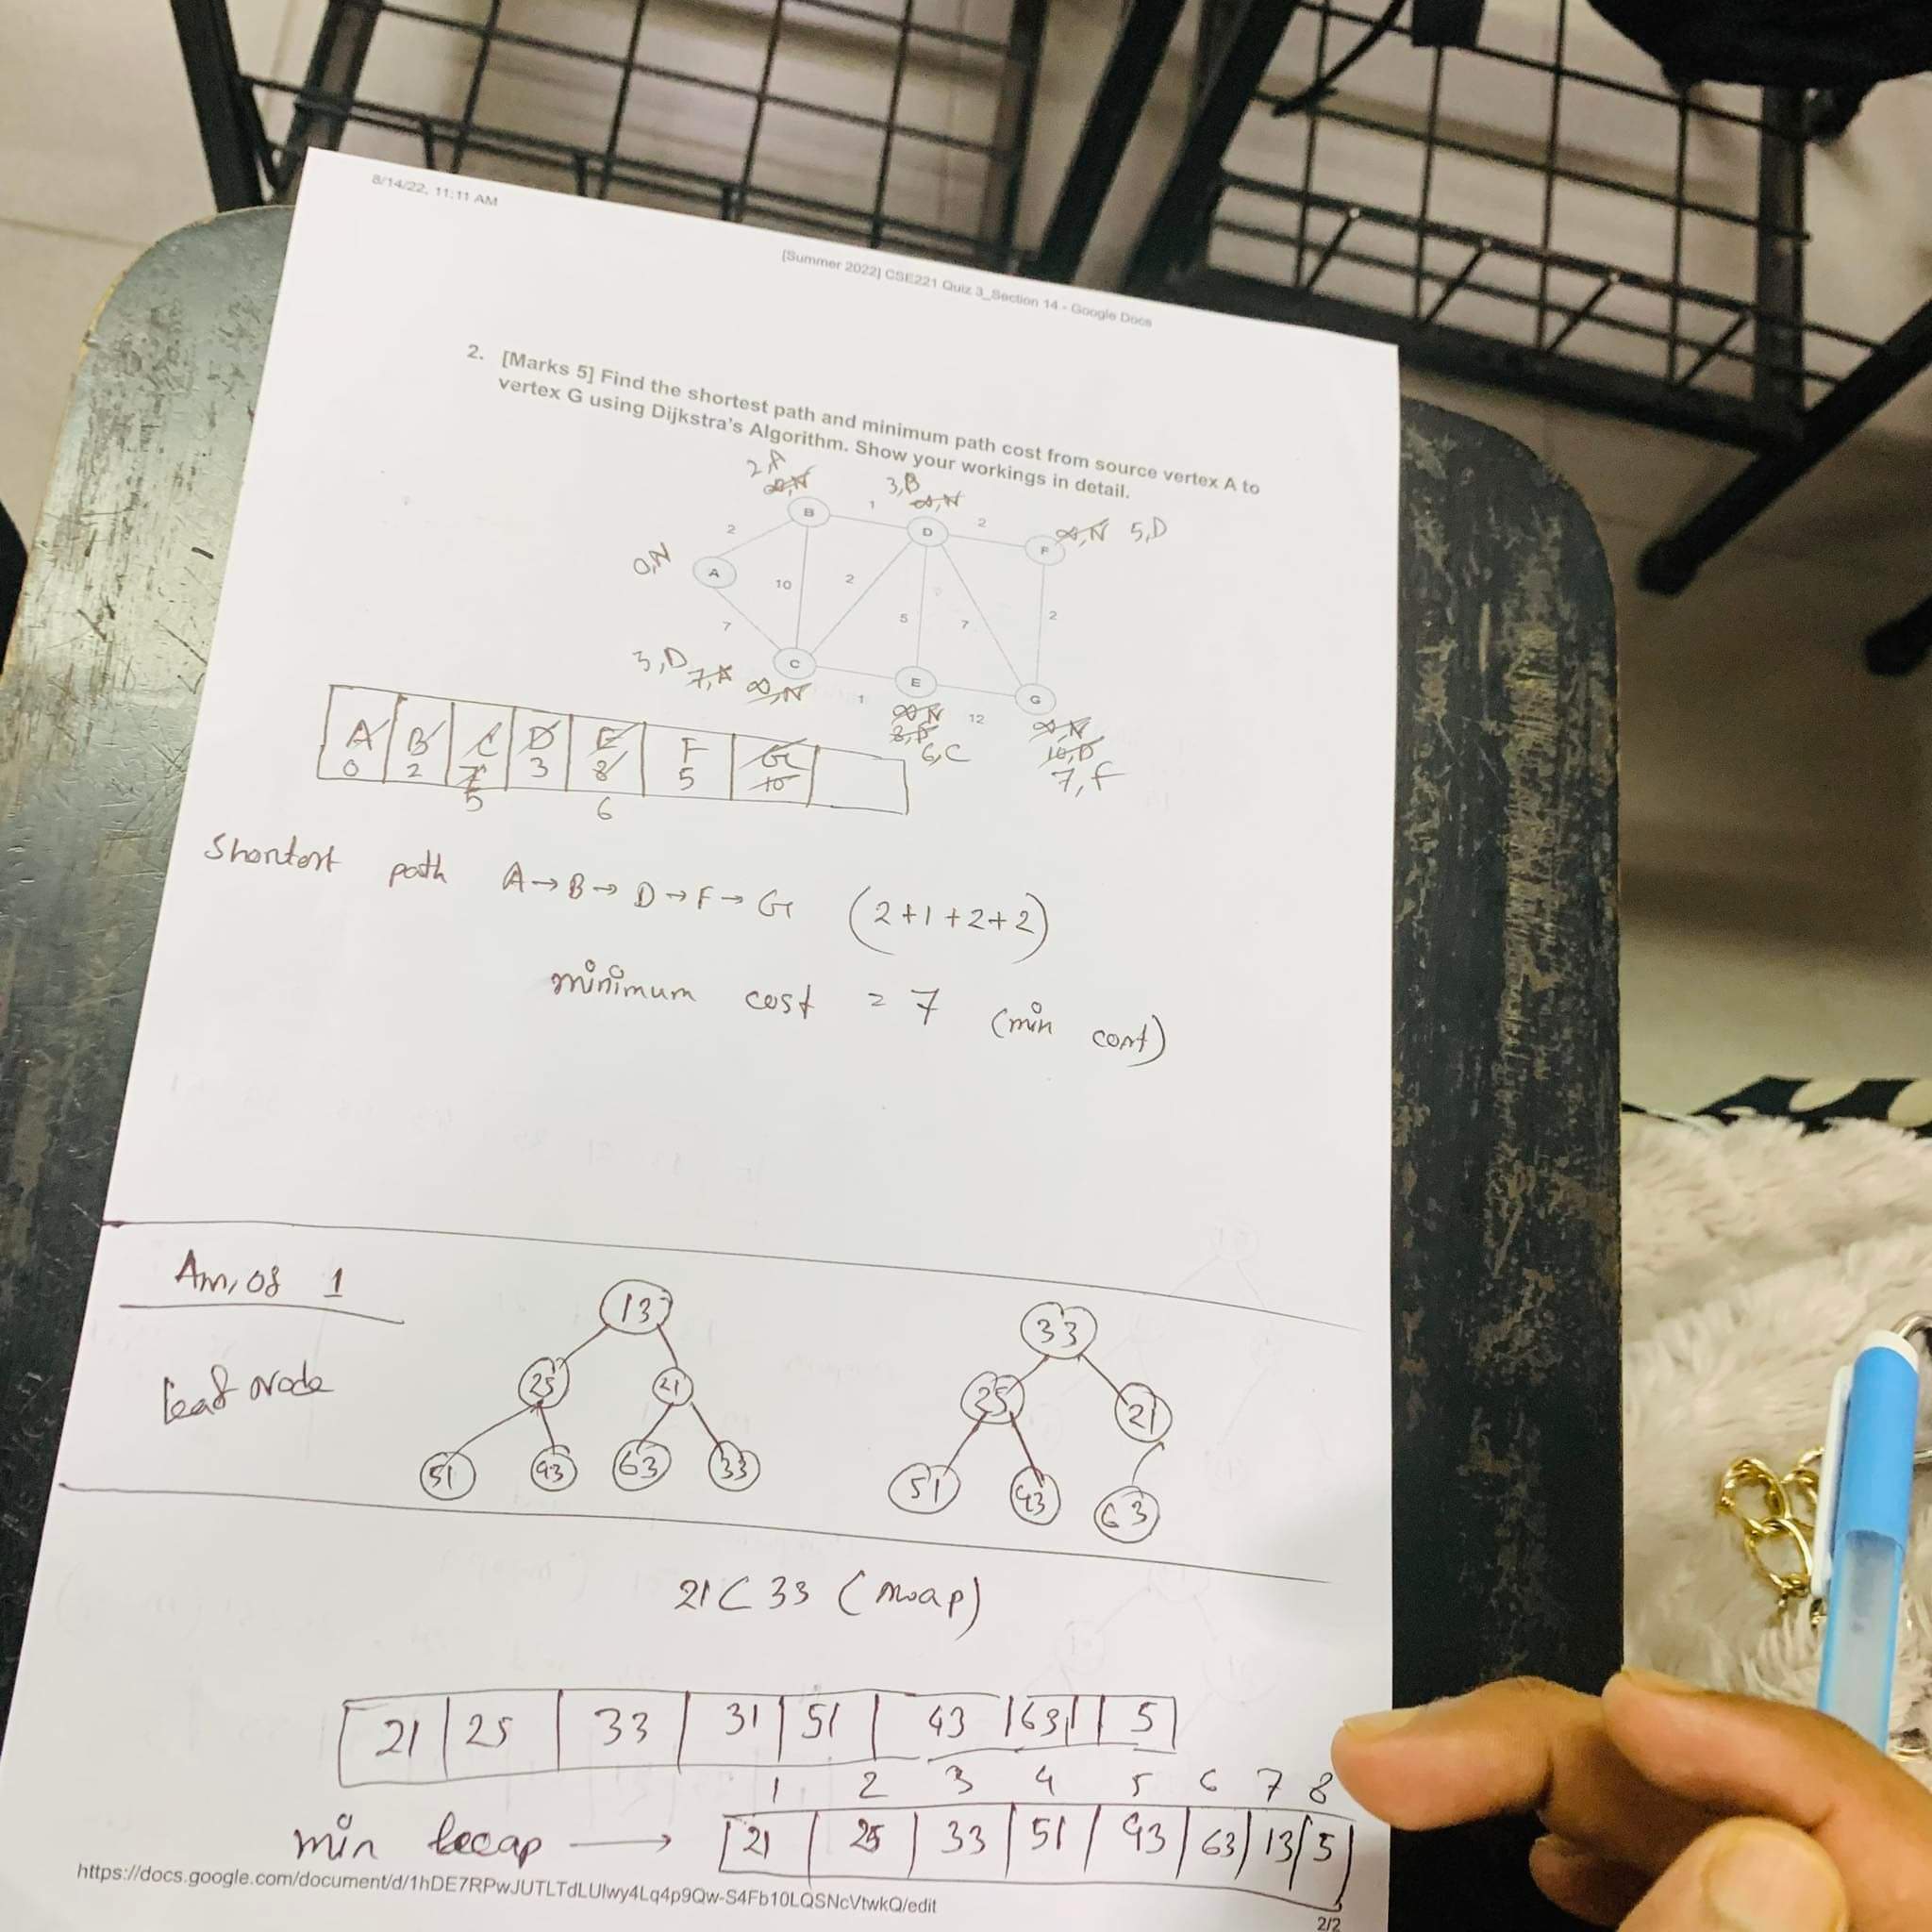 8/14/22, 11:11 AM
[Summer 2022] CSE221 Quiz 3_Section 14 - Google Docs
2. [Marks 5] Find the shortest path and minimum path cost from source vertex A to
vertex G using Dijkstra's Algorithm. Show your workings in detail.
2,A ∞,N
3,B ∞,N
∞,N 5,D
B 1 D 2 F
0,N A 2
10 2 5 7 2
7
3,D 7,A ∞,N
C 1 E 12 G
∞,N 8,D 6,C
∞,N 10,D 7,F
A B C D E F G
0 2 7 3 8 5 10
5 6
Shortest path A→B→D→F→G (2+1+2+2)
minimum cost = 7 (min cost)
Ans, of 1
leaf node
13
25 21
51 43 63 33
33
25 21
51 43 63
21 < 33 (swap)
21 25 33 31 51 43 63 5
1 2 3 4 5 6 7 8
min heap → 21 25 33 51 43 63 13 5
https://docs.google.com/document/d/1hDE7RPwJUTLTdLUlwy4Lq4p9Qw-S4Fb10LQSNcVtwkQ/edit
2/2